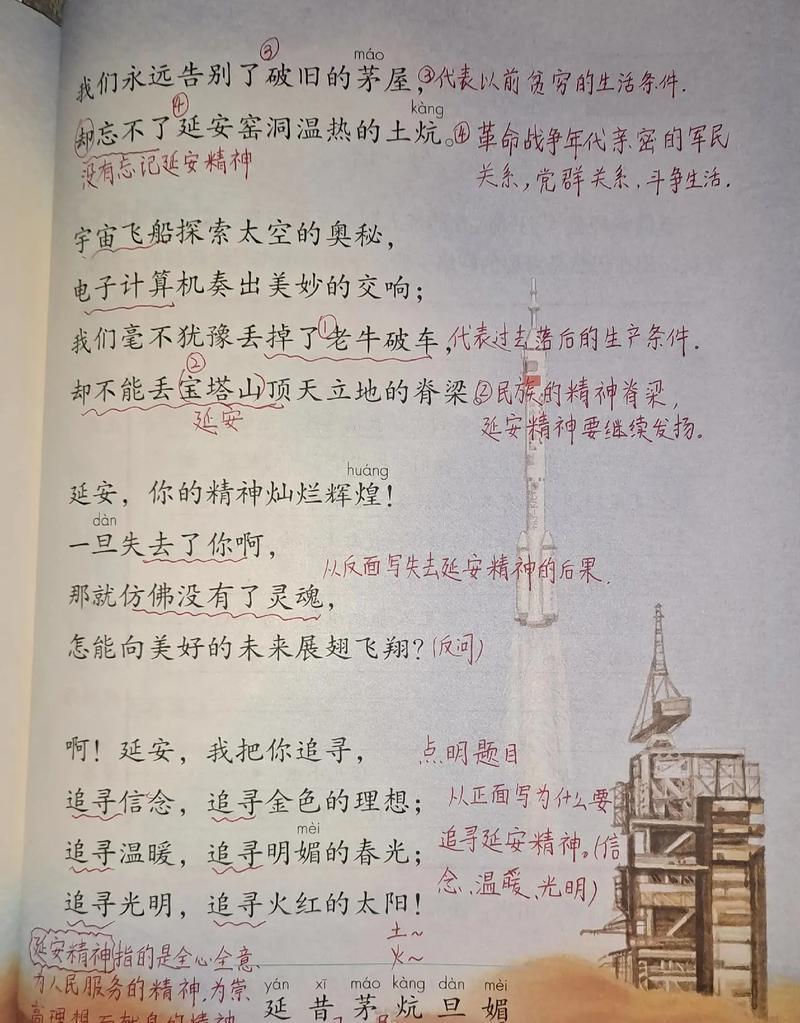 ③ máo
我们永远告别了破旧的茅屋,③代表以前贫穷的生活条件.
④ kàng
却忘不了延安窑洞温热的土炕。④革命战争年代亲密的军民
没有忘记延安精神 关系,党群关系.斗争生活.
宇宙飞船探索太空的奥秘,
电子计算机奏出美妙的交响;
我们毫不犹豫丢掉了①老牛破车,代表过去落后的生产条件.
②
却不能丢宝塔山顶天立地的脊梁②民族的精神脊梁,
延安 延安精神要继续发扬。
huáng
延安,你的精神灿烂辉煌!
dàn
一旦失去了你啊,
从反面写失去延安精神的后果.
那就仿佛没有了灵魂,
怎能向美好的未来展翅飞翔?(反问)
啊!延安,我把你追寻, 点明题目
追寻信念,追寻金色的理想; 从正面写为什么要
mèi
追寻温暖,追寻明媚的春光; 追寻延安精神。(信
追寻光明,追寻火红的太阳! 念、温暖、光明)
土~
延安精神指的是全心全意 火~
为人民服务的精神.为崇 yán xī máo kàng dàn mèi
高理想而献身的精神 延昔茅炕旦媚